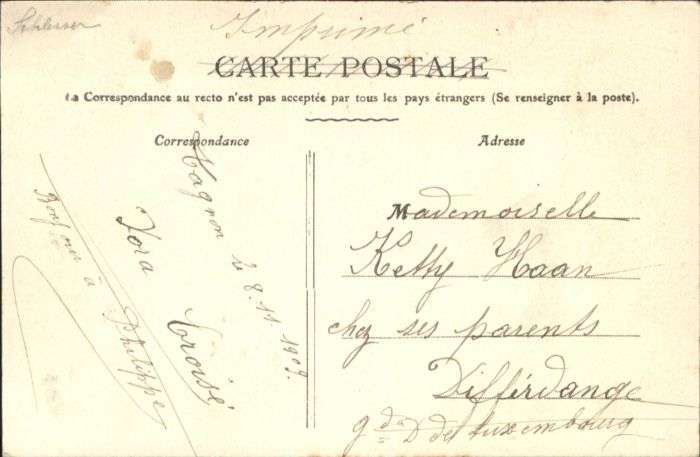 Schlesser
Imprimé
CARTE POSTALE
La Correspondance au recto n'est pas acceptée par tous les pays étrangers (Se renseigner à la poste).
Correspondance
Adresse
Magron le 8.11.1909.
Jora Croisé
Bonjour à Philippe
Mademoiselle
Ketty Haan
chez ses parents
Differdange
gd D de Luxembourg